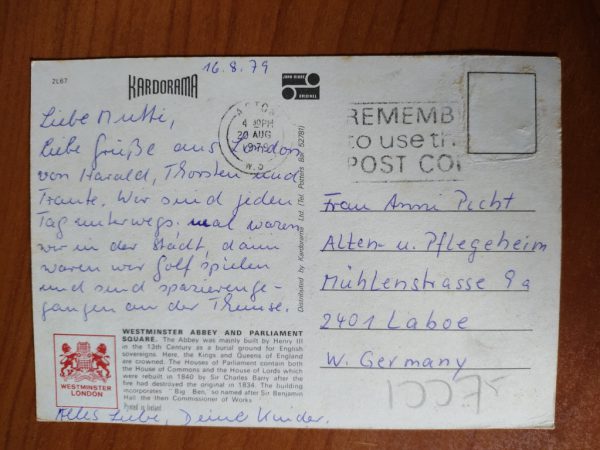 16.8.79
2L67
KARDORAMA
JOHN HINDE
ORIGINAL
Liebe Mutti,
Liebe Grüße aus London
von Harald, Thorsten und
Traute. Wir sind jeden
Tag unterwegs. mal waren
wir in der Stadt, dann
waren wir Golf spielen
und sind spazierenge-
gangen an der Themse.
ACTON
4 PM
20 AUG
1979
W.3
REMEMB
to use th
POST CO
Distributed by Kardorama Ltd. (Tel. Potters Bar 52781)
Frau Anni Picht
Alten- u. Pflegeheim
Mühlenstrasse 9a
2401 Laboe
W. Germany
WESTMINSTER ABBEY AND PARLIAMENT
SQUARE. The Abbey was mainly built by Henry III
in the 13th Century as a burial ground for English
sovereigns. Here, the Kings and Queens of England
are crowned. The Houses of Parliament contain both
the House of Commons and the House of Lords which
were rebuilt in 1840 by Sir Charles Barry after the
fire had destroyed the original in 1834. The building
incorporates "Big Ben," so named after Sir Benjamin
Hall the then Commissioner of Works
Printed in Ireland
WESTMINSTER
LONDON
Alles Liebe, Deine Kinder.